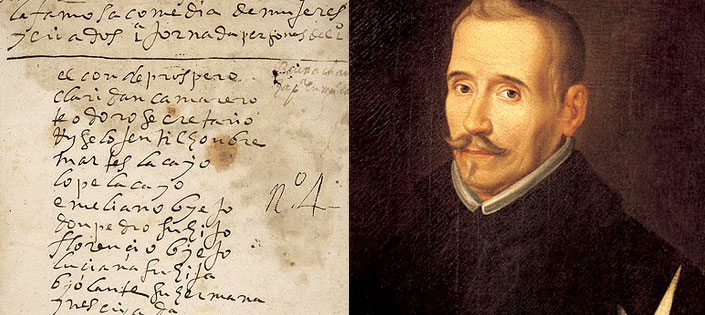 la famosa comedia de mujeres
y criados 1ª jornada personas del 1º
el conde prospero
claridan camarero
teodoro secretario
gentilhombre
martes lacayo
lope lacayo
nº 4
emeliano byejo
don pedro su hijo
florencio byejo
luciana su hija
byolante su hermana
ynes criada